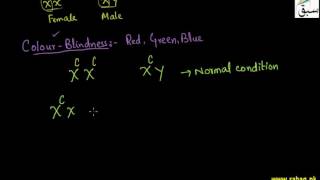 XX XY
Female Male
Colour-Blindness:- Red, Green, Blue
X^C X^C X^C Y → Normal condition
X^C X
سبق
www.sabaq.pk